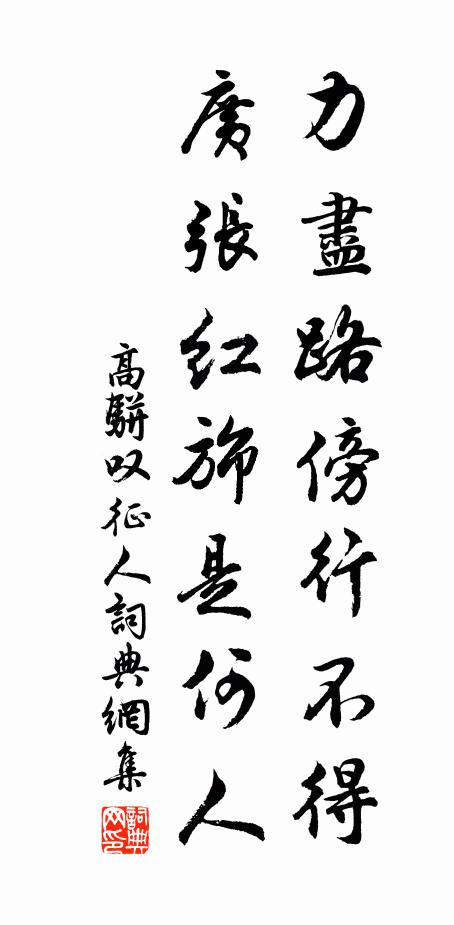 力盡路傍行不得
廣張紅旆是何人
高駢叹征人詞典網集
詞典网印